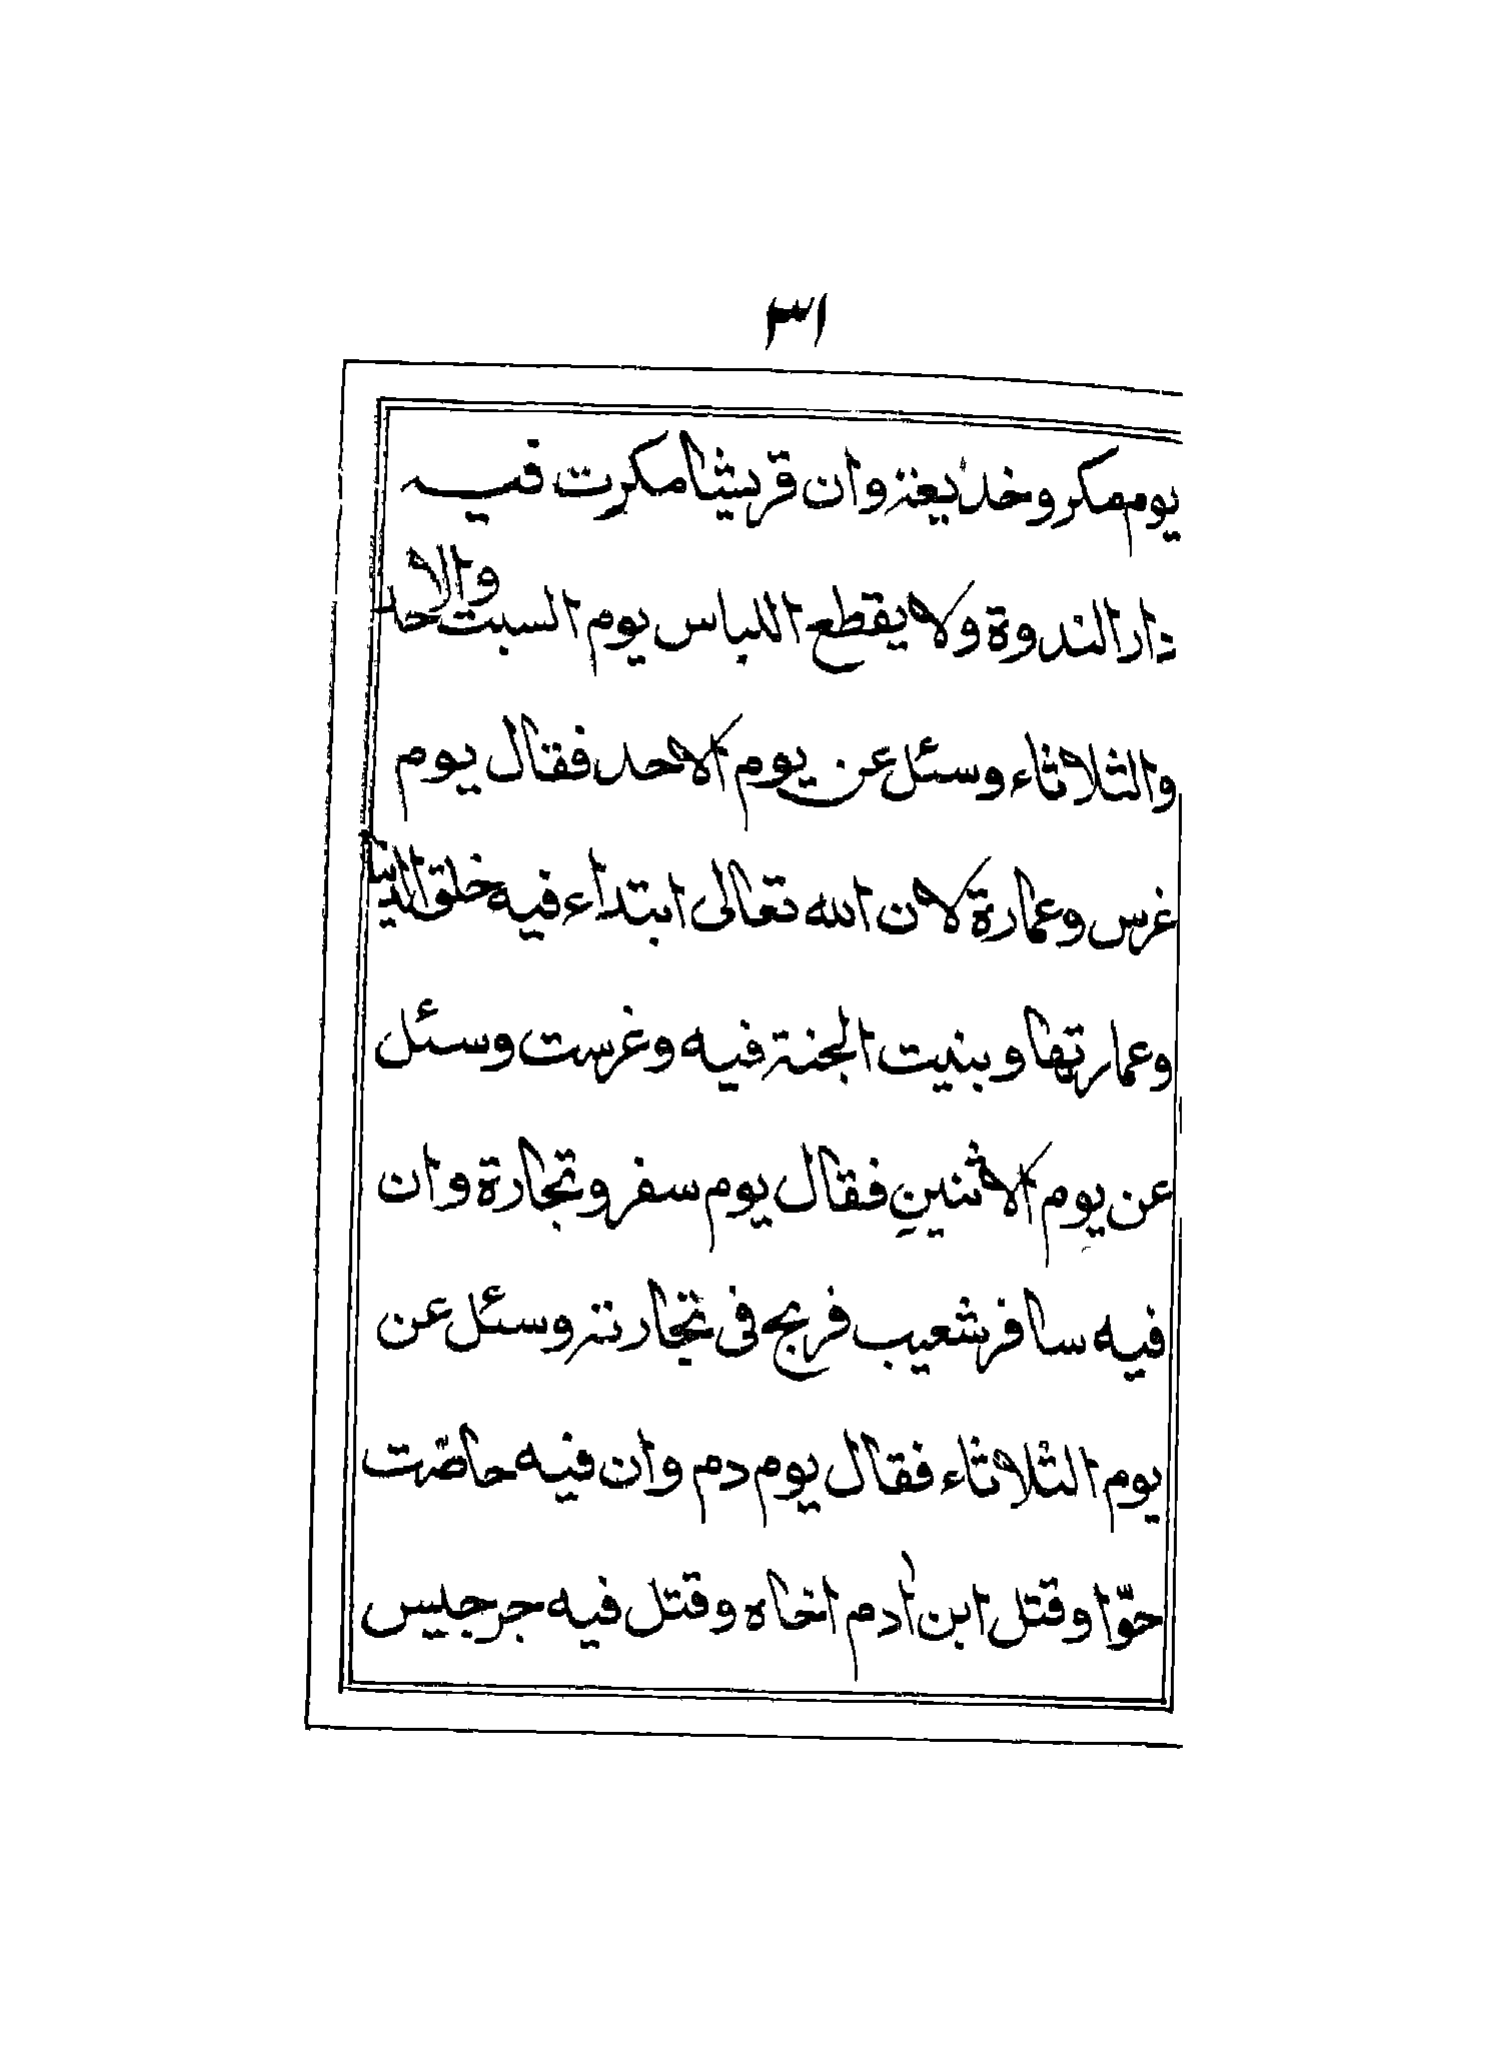 ٣١
يوم مكر وخديعة وان قريشا مكرت فيه
دار الندوة ولا يقطع اللباس يوم السبت والاحد
والثلاثاء وسئل عن يوم الاحد فقال يوم
غرس وعمارة لان الله تعالى ابتداء فيه خلق الدنيا
وعمارتها وبنيت الجنة فيه وغرست وسئل
عن يوم الاثنين فقال يوم سفر وتجارة وان
فيه سافر شعيب فربح فى تجارته وسئل عن
يوم الثلاثاء فقال يوم دم وان فيه حاضت
حوّا وقتل ابن اٰدم اخاه وقتل فيه جرجليس